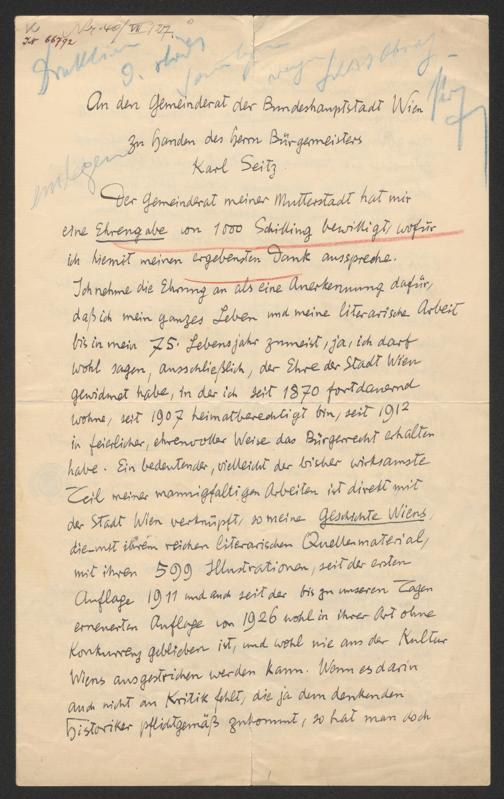 I.N. 66792
An den Gemeinderat der Bundeshauptstadt Wien
zu Handen des Herrn Bürgermeisters
Karl Seitz.
Der Gemeinderat meiner Mutterstadt hat mir
eine Ehrengabe von 1000 Schilling bewilligt, wofür
ich hiemit meinen ergebensten Dank ausspreche.
Ich nehme die Ehrung an als eine Anerkennung dafür,
daß ich mein ganzes Leben und meine literarische Arbeit
bis in mein 75. Lebensjahr zumeist, ja, ich darf
wohl sagen, ausschließlich, der Ehre der Stadt Wien
gewidmet habe, in der ich seit 1870 fortdauernd
wohne, seit 1907 heimatberechtigt bin, seit 1912
in feierlicher, ehrenvoller Weise das Bürgerrecht erhalten
habe. Ein bedeutender, vielleicht der bisher wirksamste
Teil meiner mannigfaltigen Arbeiten ist direkt mit
der Stadt Wien verknüpft, so meine Geschichte Wiens,
die mit ihrem reichen literarischen Quellenmaterial,
mit ihren 599 Illustrationen, seit der ersten
Auflage 1911 und auch seit der bis zu unseren Tagen
erneuerten Auflage von 1926 wohl in ihrer Art ohne
Konkurrenz geblieben ist, und wohl nie aus der Kultur
Wiens ausgestrichen werden kann. Wenn es darin
auch nicht an Kritik fehlt, die ja dem denkenden
Historiker pflichtgemäß zukommt, so hat man doch